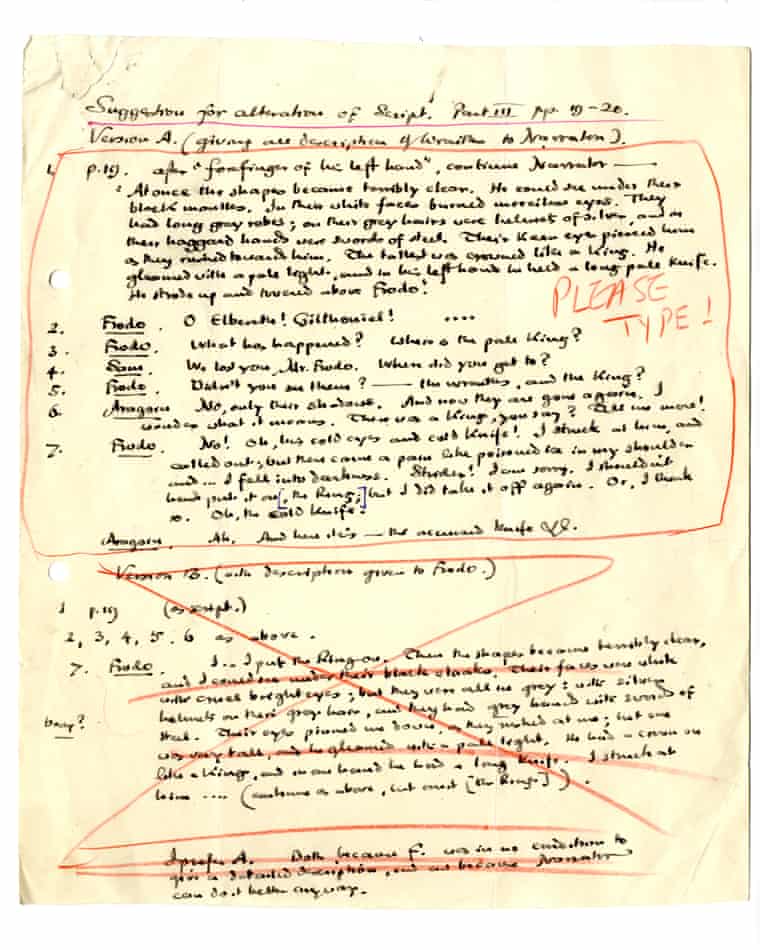 Suggestion for alteration of Script. Part III pp. 19–20.
Version A. (giving all description of Wraiths to Narrator).
1. p.19. after "forefinger of his left hand", continue Narrator —
'At once the shapes became terribly clear. He could see under their
black mantles. In their white faces burned merciless eyes. They
had long grey robes; on their grey hairs were helmets of silver, and in
their haggard hands were swords of steel. Their keen eyes pierced him
as they rushed toward him. The tallest was crowned like a King. He
gleamed with a pale light, and in his left hand he held a long pale knife.
He strode up and towered above Frodo!
PLEASE
TYPE!
2. Frodo. O Elbereth! Gilthoniel! ....
3. Frodo. What has happened? Where is the pale King?
4. Sam. We lost you, Mr. Frodo. Where did you get to?
5. Frodo. Didn't you see them? — the wraiths, and the King?
6. Aragorn No, only their shadows. And now they are gone again. I
wonder what it means. There was a King, you say? Tell me more!
7. Frodo. No! Oh, his cold eyes and cold knife! I struck at him, and
called out; but there came a pain like poisoned ice in my shoulder
and... I fell into darkness. Strider! I am sorry. I shouldn't
have put it on [, the Ring;] but I did take it off again. Or, I think
so. Oh, the cold knife!
Aragorn. Ah. And here it is — the accursed knife
Version B. (with description given to Frodo.)
1 p.19 (as script.)
2, 3, 4, 5. 6 as above.
7. Frodo. I... I put the Ring on. Then the shapes became terribly clear,
and I could see under their black cloaks. Their faces were white
with cruel bright eyes; but they were all in grey: with silver
helmets on their grey hair, and they had grey hands with swords of
steel. Their eyes pinned me down, as they rushed at me; but one
was very tall, and he gleamed with a pale light. He had a crown on
like a King, and in one hand he had a long knife. I struck at
him .... (continue as above, but omit [the Ring;]).
I prefer A. Both because F. was in no condition to
give a detailed description, and because Narrator
can do it better anyway.